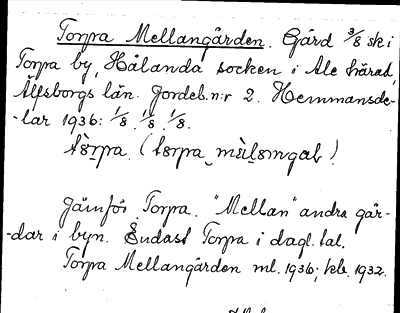 Torpa Mellangården. Gård 3/8 sk i
Torpa by, Hålanda socken i Ale härad,
Älfsborgs län. Jordeb. n:r 2. Hemmansde-
-lar 1936: 1/8. 1/8. 1/8.
Jämför Torpa. "Mellan" andra går-
-dar i byn. Endast Torpa i dagl. tal.
Torpa Mellangården ml. 1936; jkb. 1932.